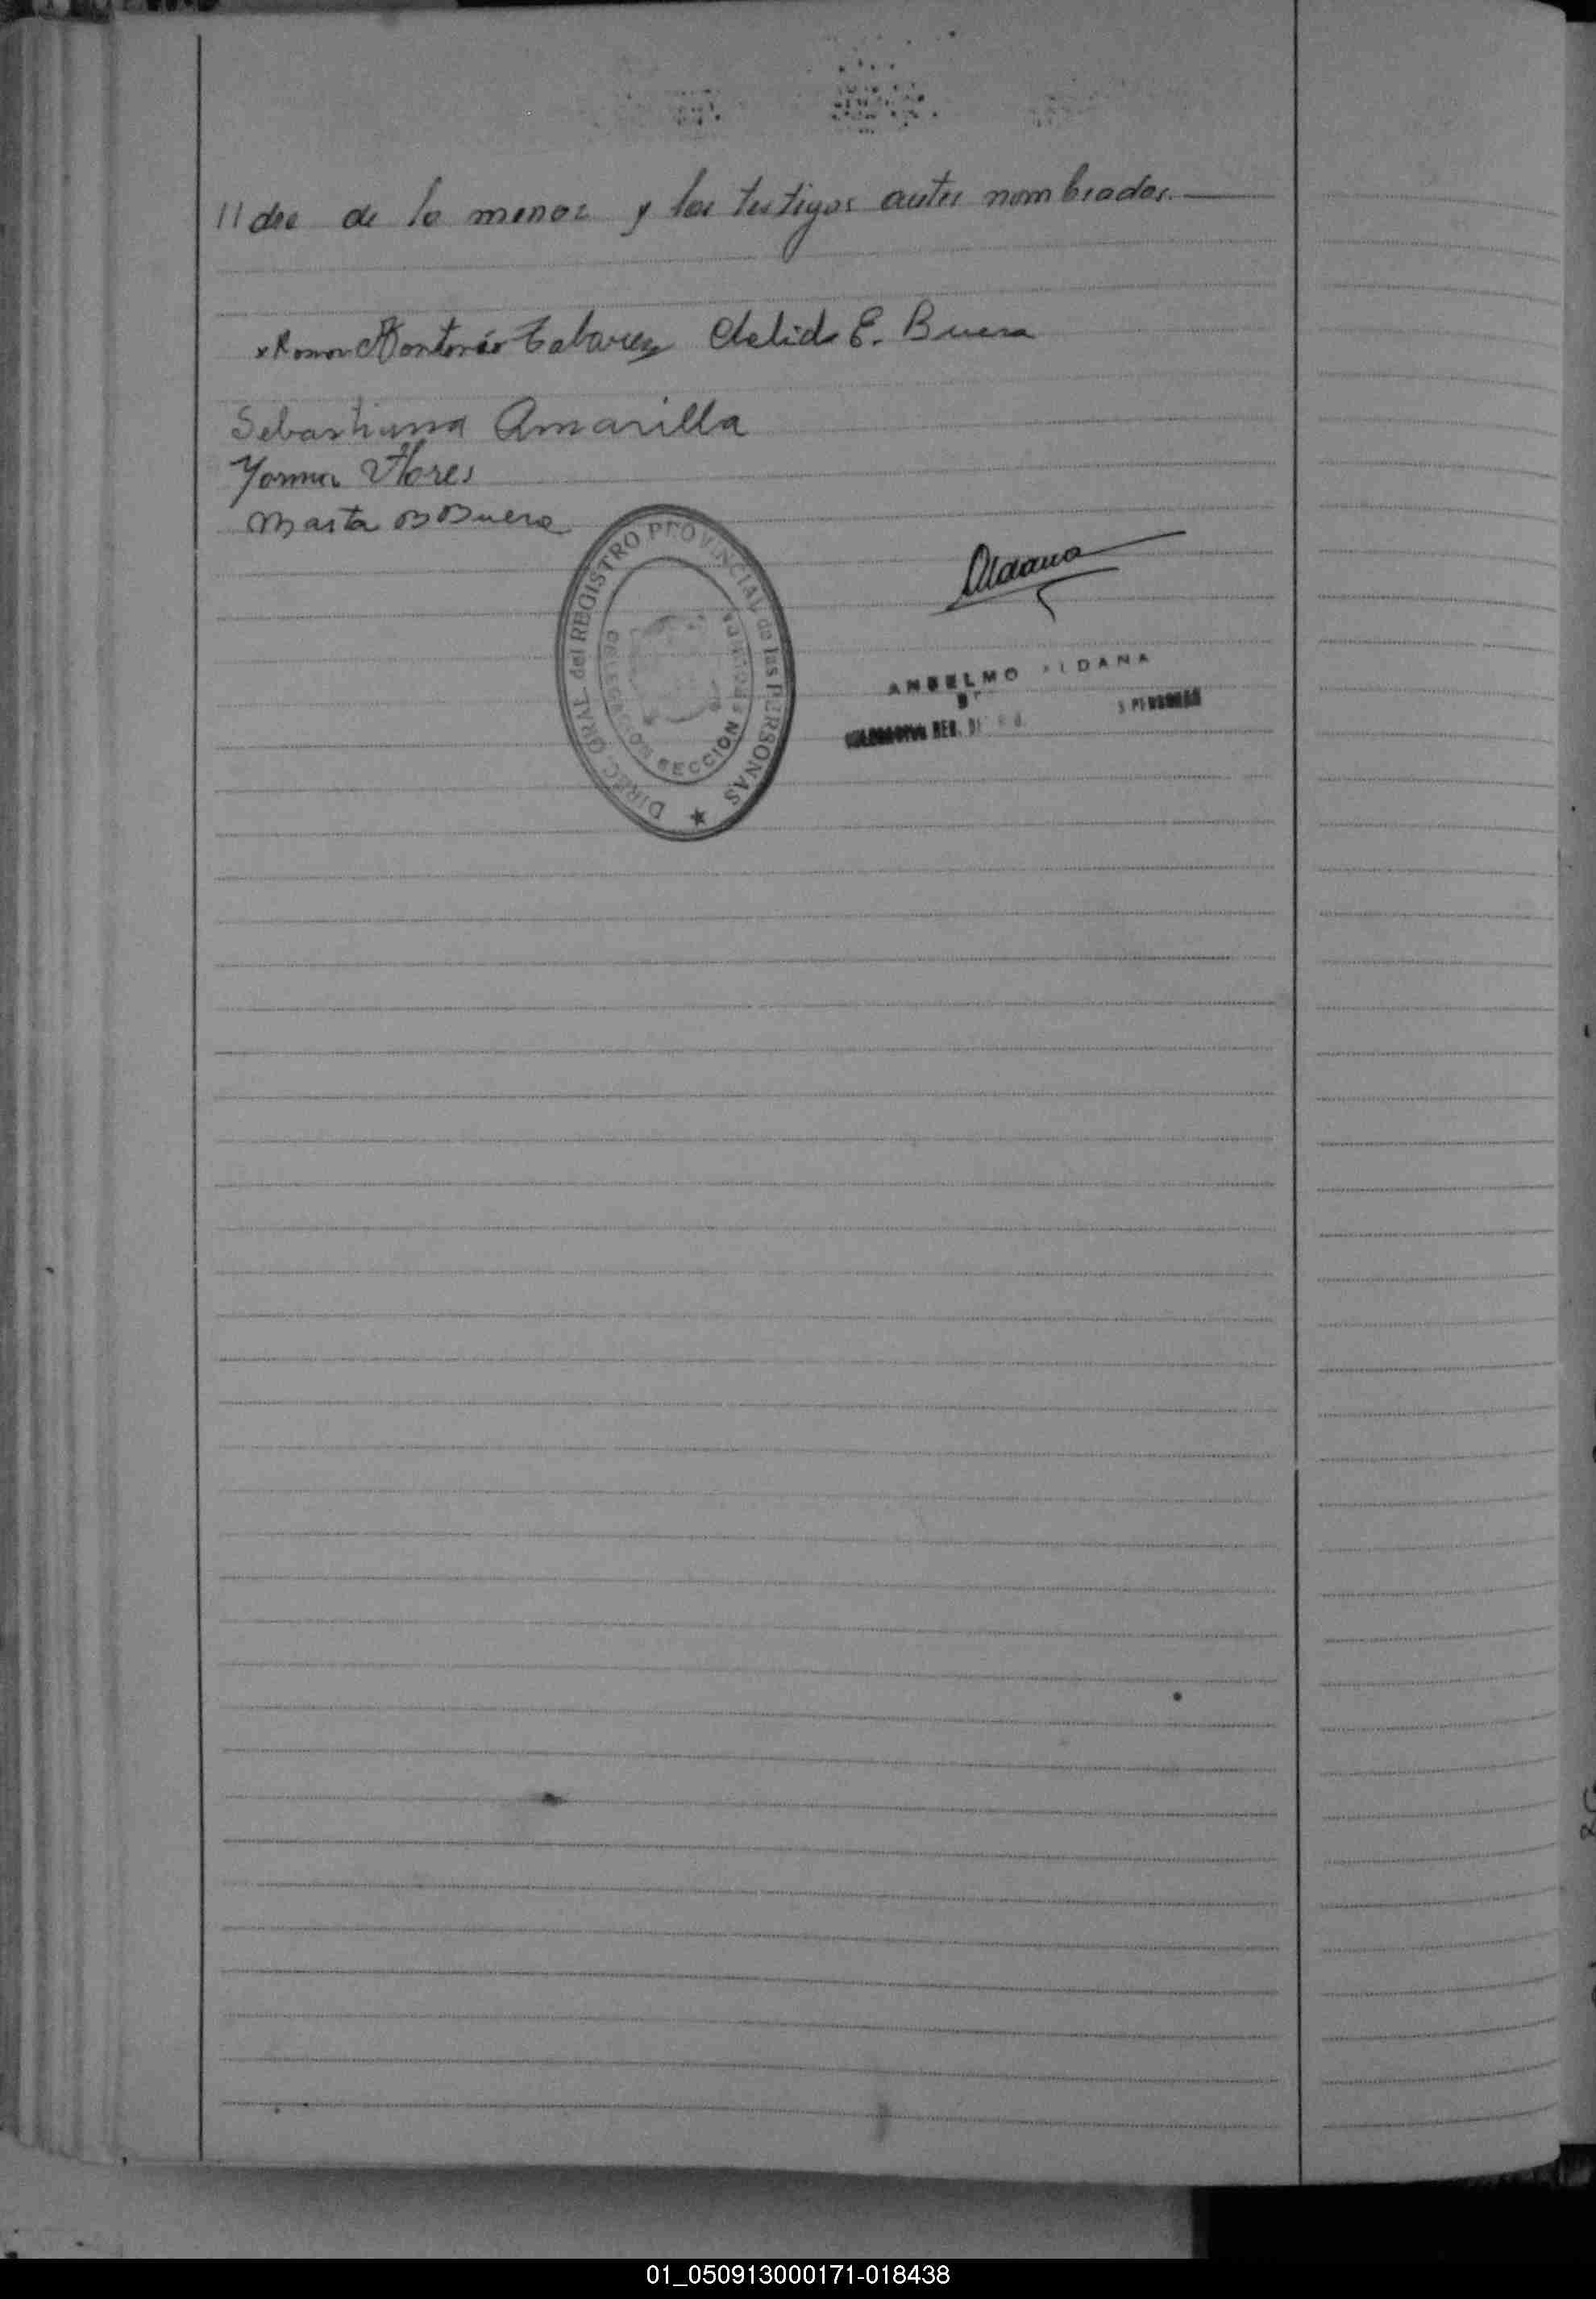 //dre de la menor y los testigos antes nombrados.
x Ramon Antonio Tabarez Clelid E. Buera
Sebastiana Amarilla
Norma Flores
Marta B Buera
Aldana
DIREC. GRAL. del REGISTRO PROVINCIAL de las PERSONAS
DELEGACION SECCION
ANSELMO ALDANA
REG.
01_050913000171-018438